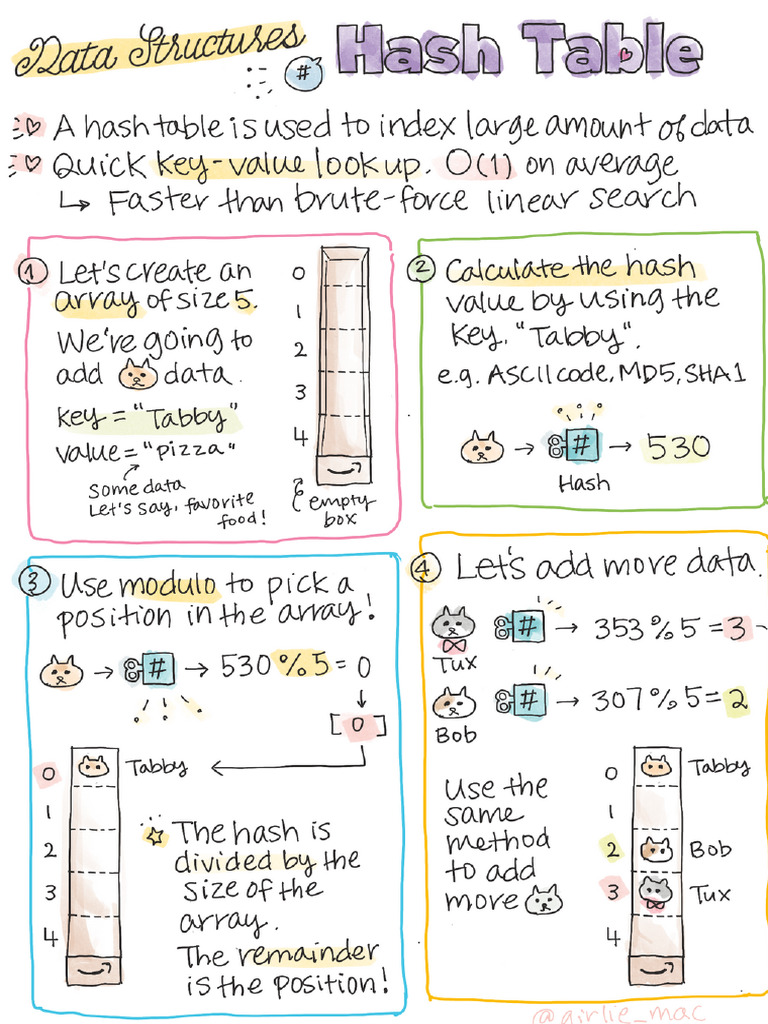 Data Structures
# Hash Table
A hash table is used to index large amount of data
Quick key-value look up. O(1) on average
↳ Faster than brute-force linear search
1 Let's create an
array of size 5.
We're going to
add data.
key = "Tabby"
value = "pizza"
some data
Let's say, favorite
food!
0
1
2
3
4
empty
box
2 Calculate the hash
value by using the
key, "Tabby".
e.g. ASCII code, MD5, SHA1
→ # → 530
Hash
3 Use modulo to pick a
position in the array!
→ # → 530 % 5 = 0
[0]
0 Tabby
1
2
3
4
The hash is
divided by the
size of the
array.
The remainder
is the position!
4 Let's add more data.
# → 353 % 5 = 3
Tux
# → 307 % 5 = 2
Bob
Use the
same
method
to add
more
0 Tabby
1
2 Bob
3 Tux
4
@girlie_mac